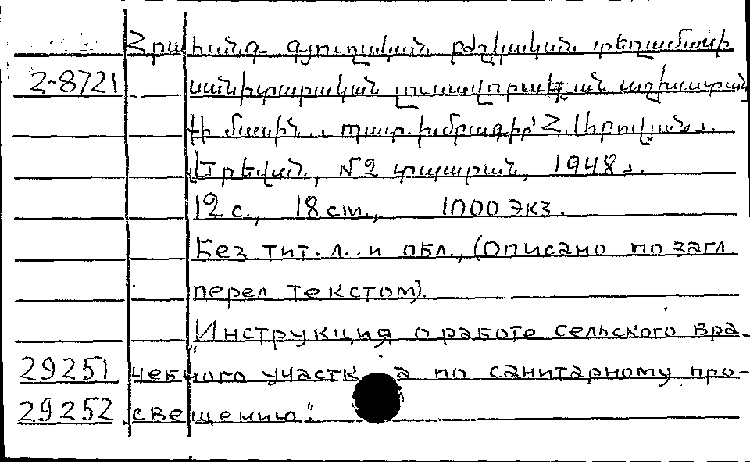 Հրահանգ գյուղական բժշկական տեղամասի
2-8721 սանիտարական լուսավորության աշխատան
քի մասին. պատ. խմբագիր՝ Հ.
Երևան, №2 տպարան, 1948թ.
12 с., 18 cm., 1000 экз.
Без тит. л. и обл., (описано по загл
перел текстом).
"Инструкция о работе сельского вра-
29251 чебного участка по санитарному про-
29252 свещению".